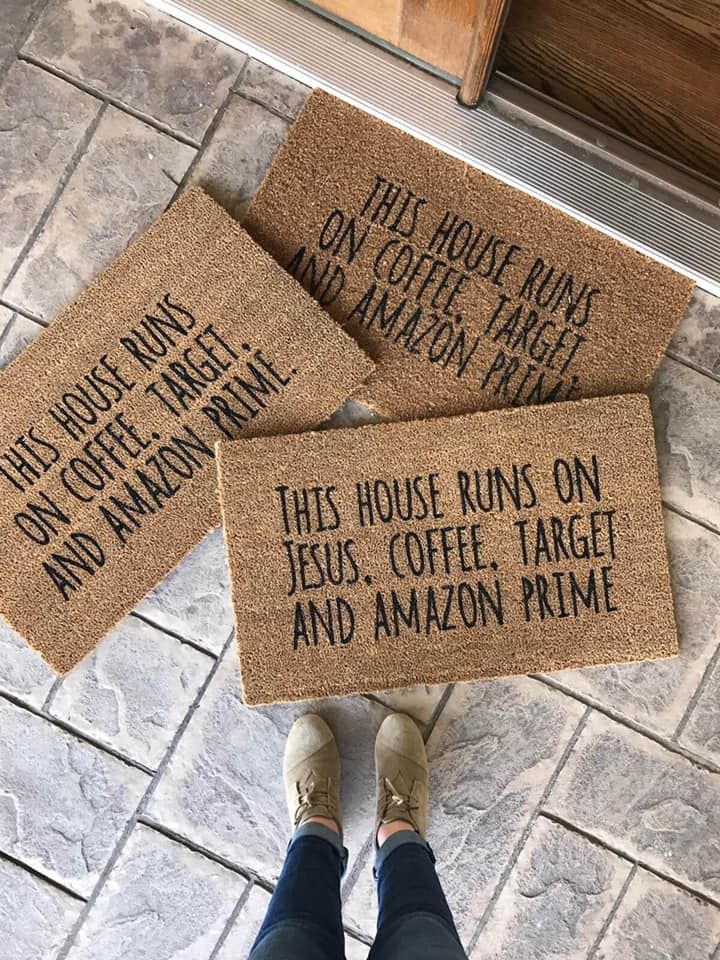 THIS HOUSE RUNS
ON COFFEE, TARGET
AND AMAZON PRIME.
THIS HOUSE RUNS
ON COFFEE, TARGET,
AND AMAZON PRIME.
THIS HOUSE RUNS ON
JESUS, COFFEE, TARGET
AND AMAZON PRIME